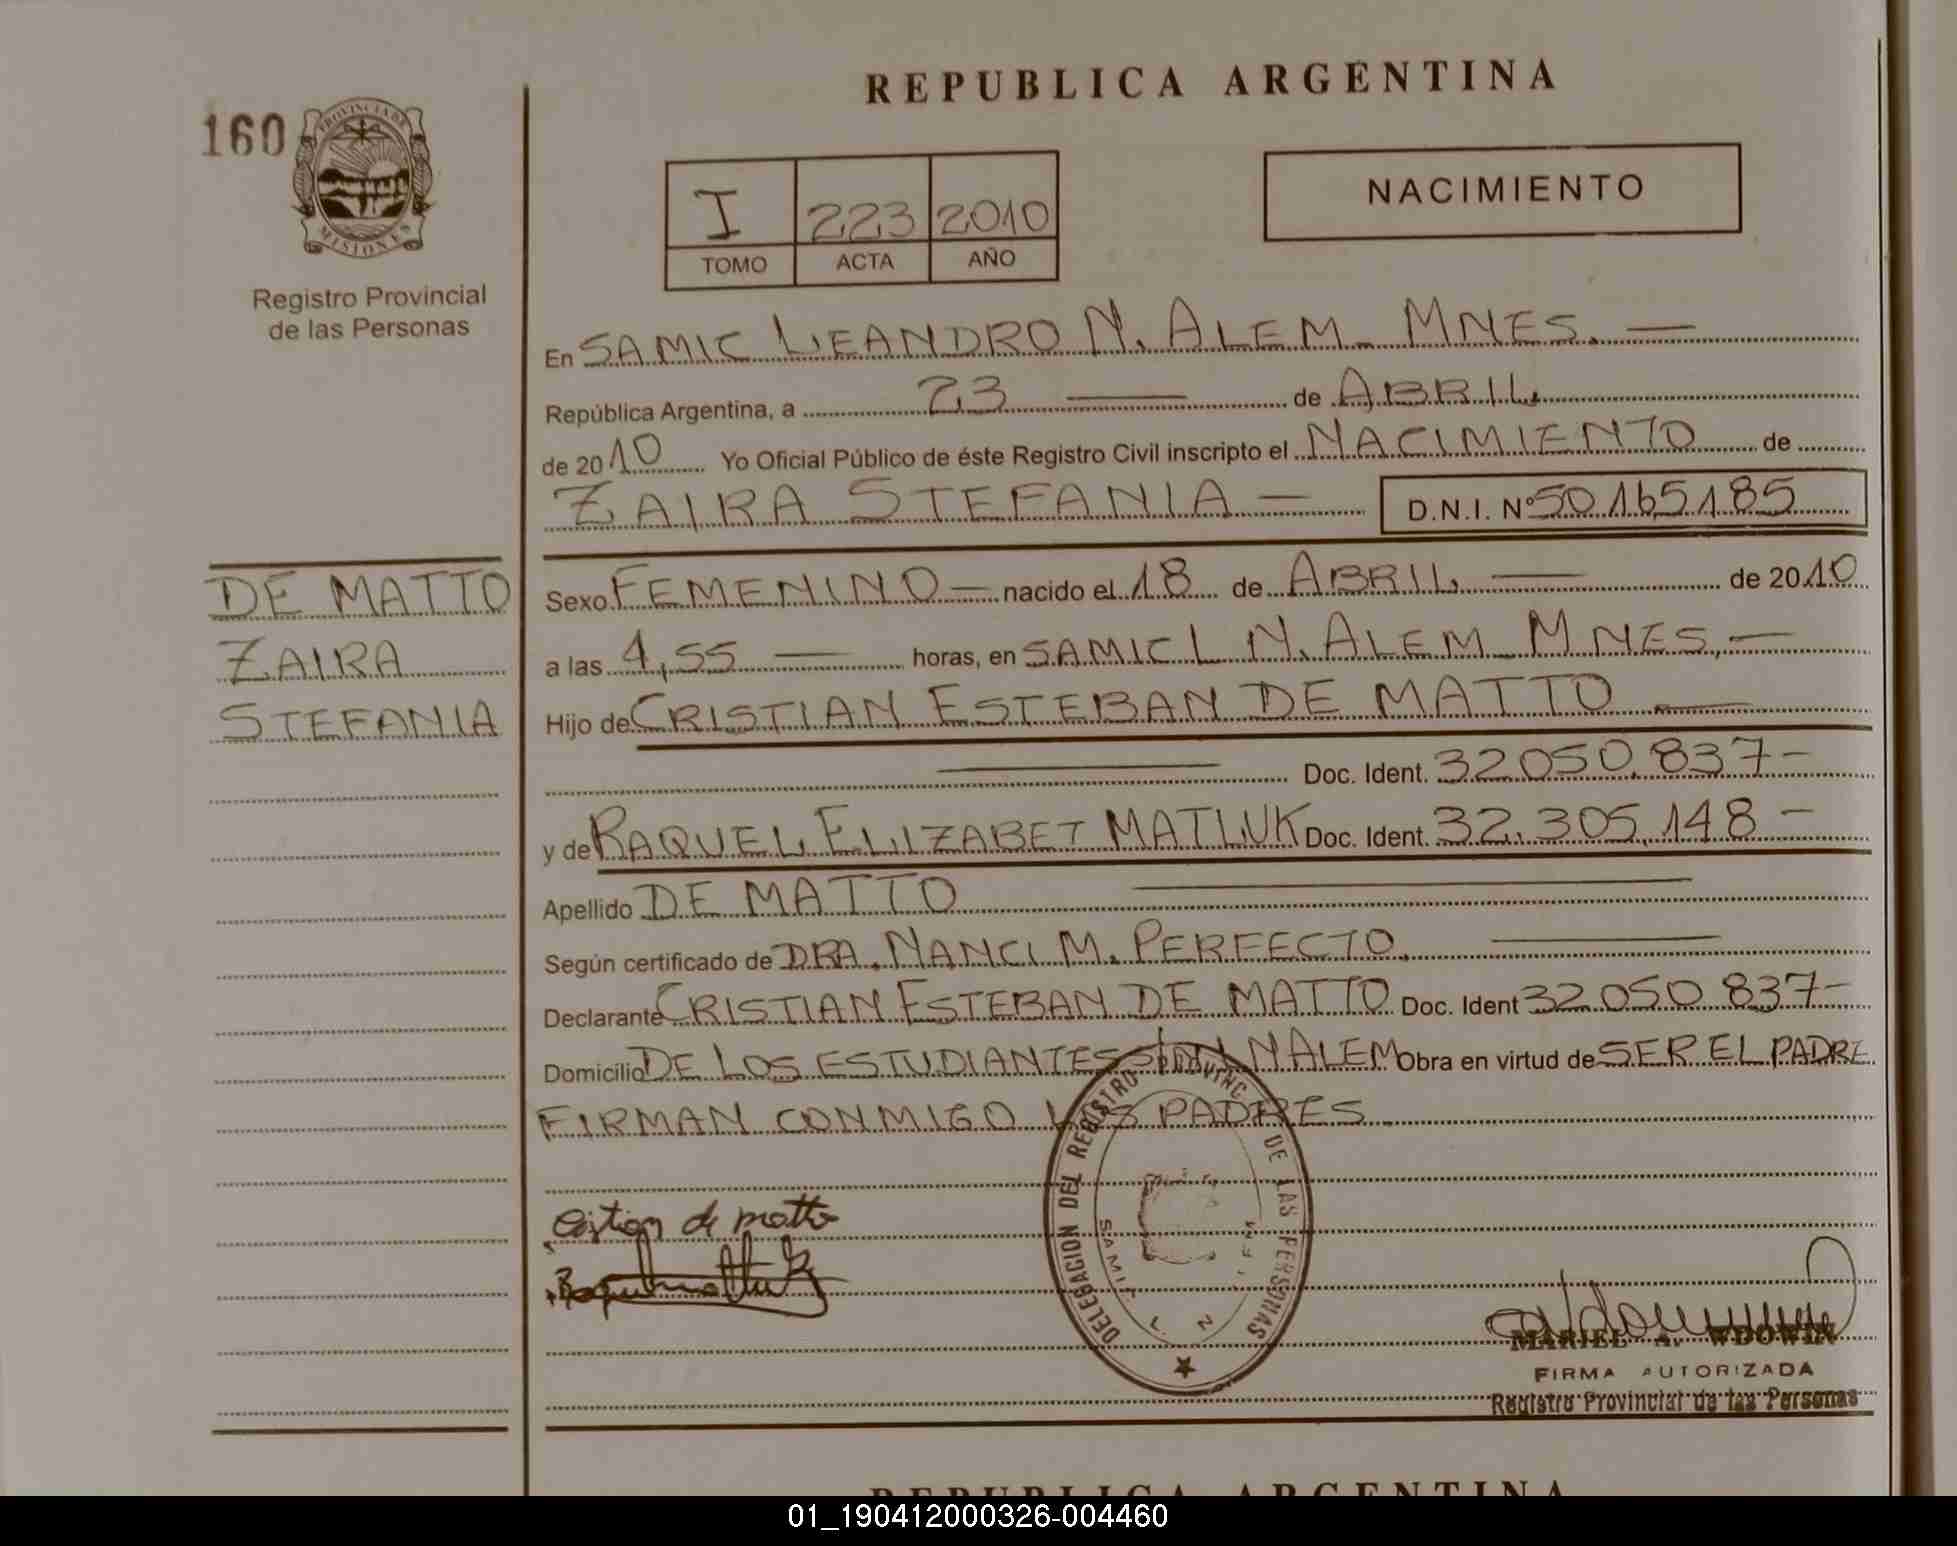 REPUBLICA ARGENTINA
160
PROVINCIA DE
MISIONES
Registro Provincial
de las Personas
I 223 2010
TOMO ACTA AÑO
NACIMIENTO
En SAMIC LEANDRO N. ALEM - MNES. —
República Argentina, a 23 — de ABRIL
de 2010 Yo Oficial Público de éste Registro Civil inscripto el NACIMIENTO de
ZAIRA STEFANIA — D.N.I. Nº 50.165.185
DE MATTO
ZAIRA
STEFANIA
Sexo FEMENINO — nacido el 18 de ABRIL — de 2010
a las 4,55 — horas, en SAMIC L N. ALEM - MNES. —
Hijo de CRISTIAN ESTEBAN DE MATTO —
— Doc. Ident. 32.050.837-
y de RAQUEL ELIZABET MATLUK Doc. Ident. 32.305.148 -
Apellido DE MATTO —
Según certificado de DRA. NANCI M. PERFECTO. —
Declarante CRISTIAN ESTEBAN DE MATTO Doc. Ident 32.050.837-
Domicilio DE LOS ESTUDIANTES S/N L N ALEM Obra en virtud de SER EL PADRE
FIRMAN CONMIGO LOS PADRES
DELEGACION DEL REGISTRO PROVINC. DE LAS PERSONAS
SAMIC L. N.
Cristian de matto
MARIEL A. WDOWIN
FIRMA AUTORIZADA
Registro Provincial de las Personas
REPUBLICA ARGENTINA
01_190412000326-004460